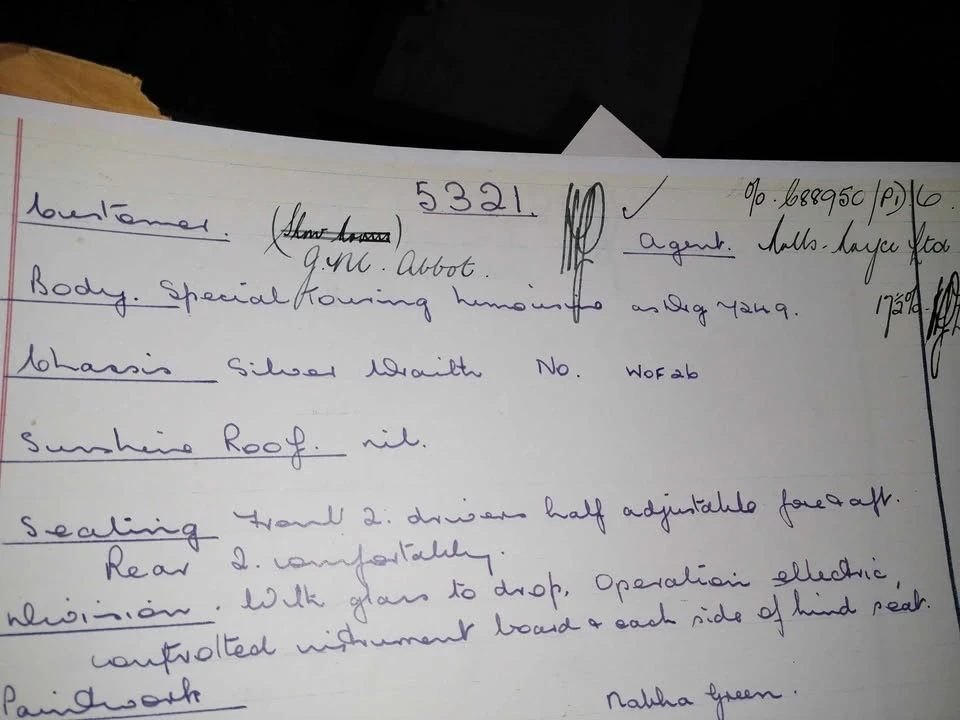 5321.
O/o. 688950/PD/6.
Customer. (Show rooms) Agent. Rolls-Royce Ltd
Abbot.
Body. Special Touring Limousine as Drg 7249. 17½%
Chassis Silver Wraith No. WOF26
Sunshine Roof. nil.
Seating Front 2. drivers half adjustable fore & aft.
Rear 2. comfortably.
Division. With glass to drop. Operation electric,
controlled instrument board & each side of hind seat.
Paintwork Nabha Green.